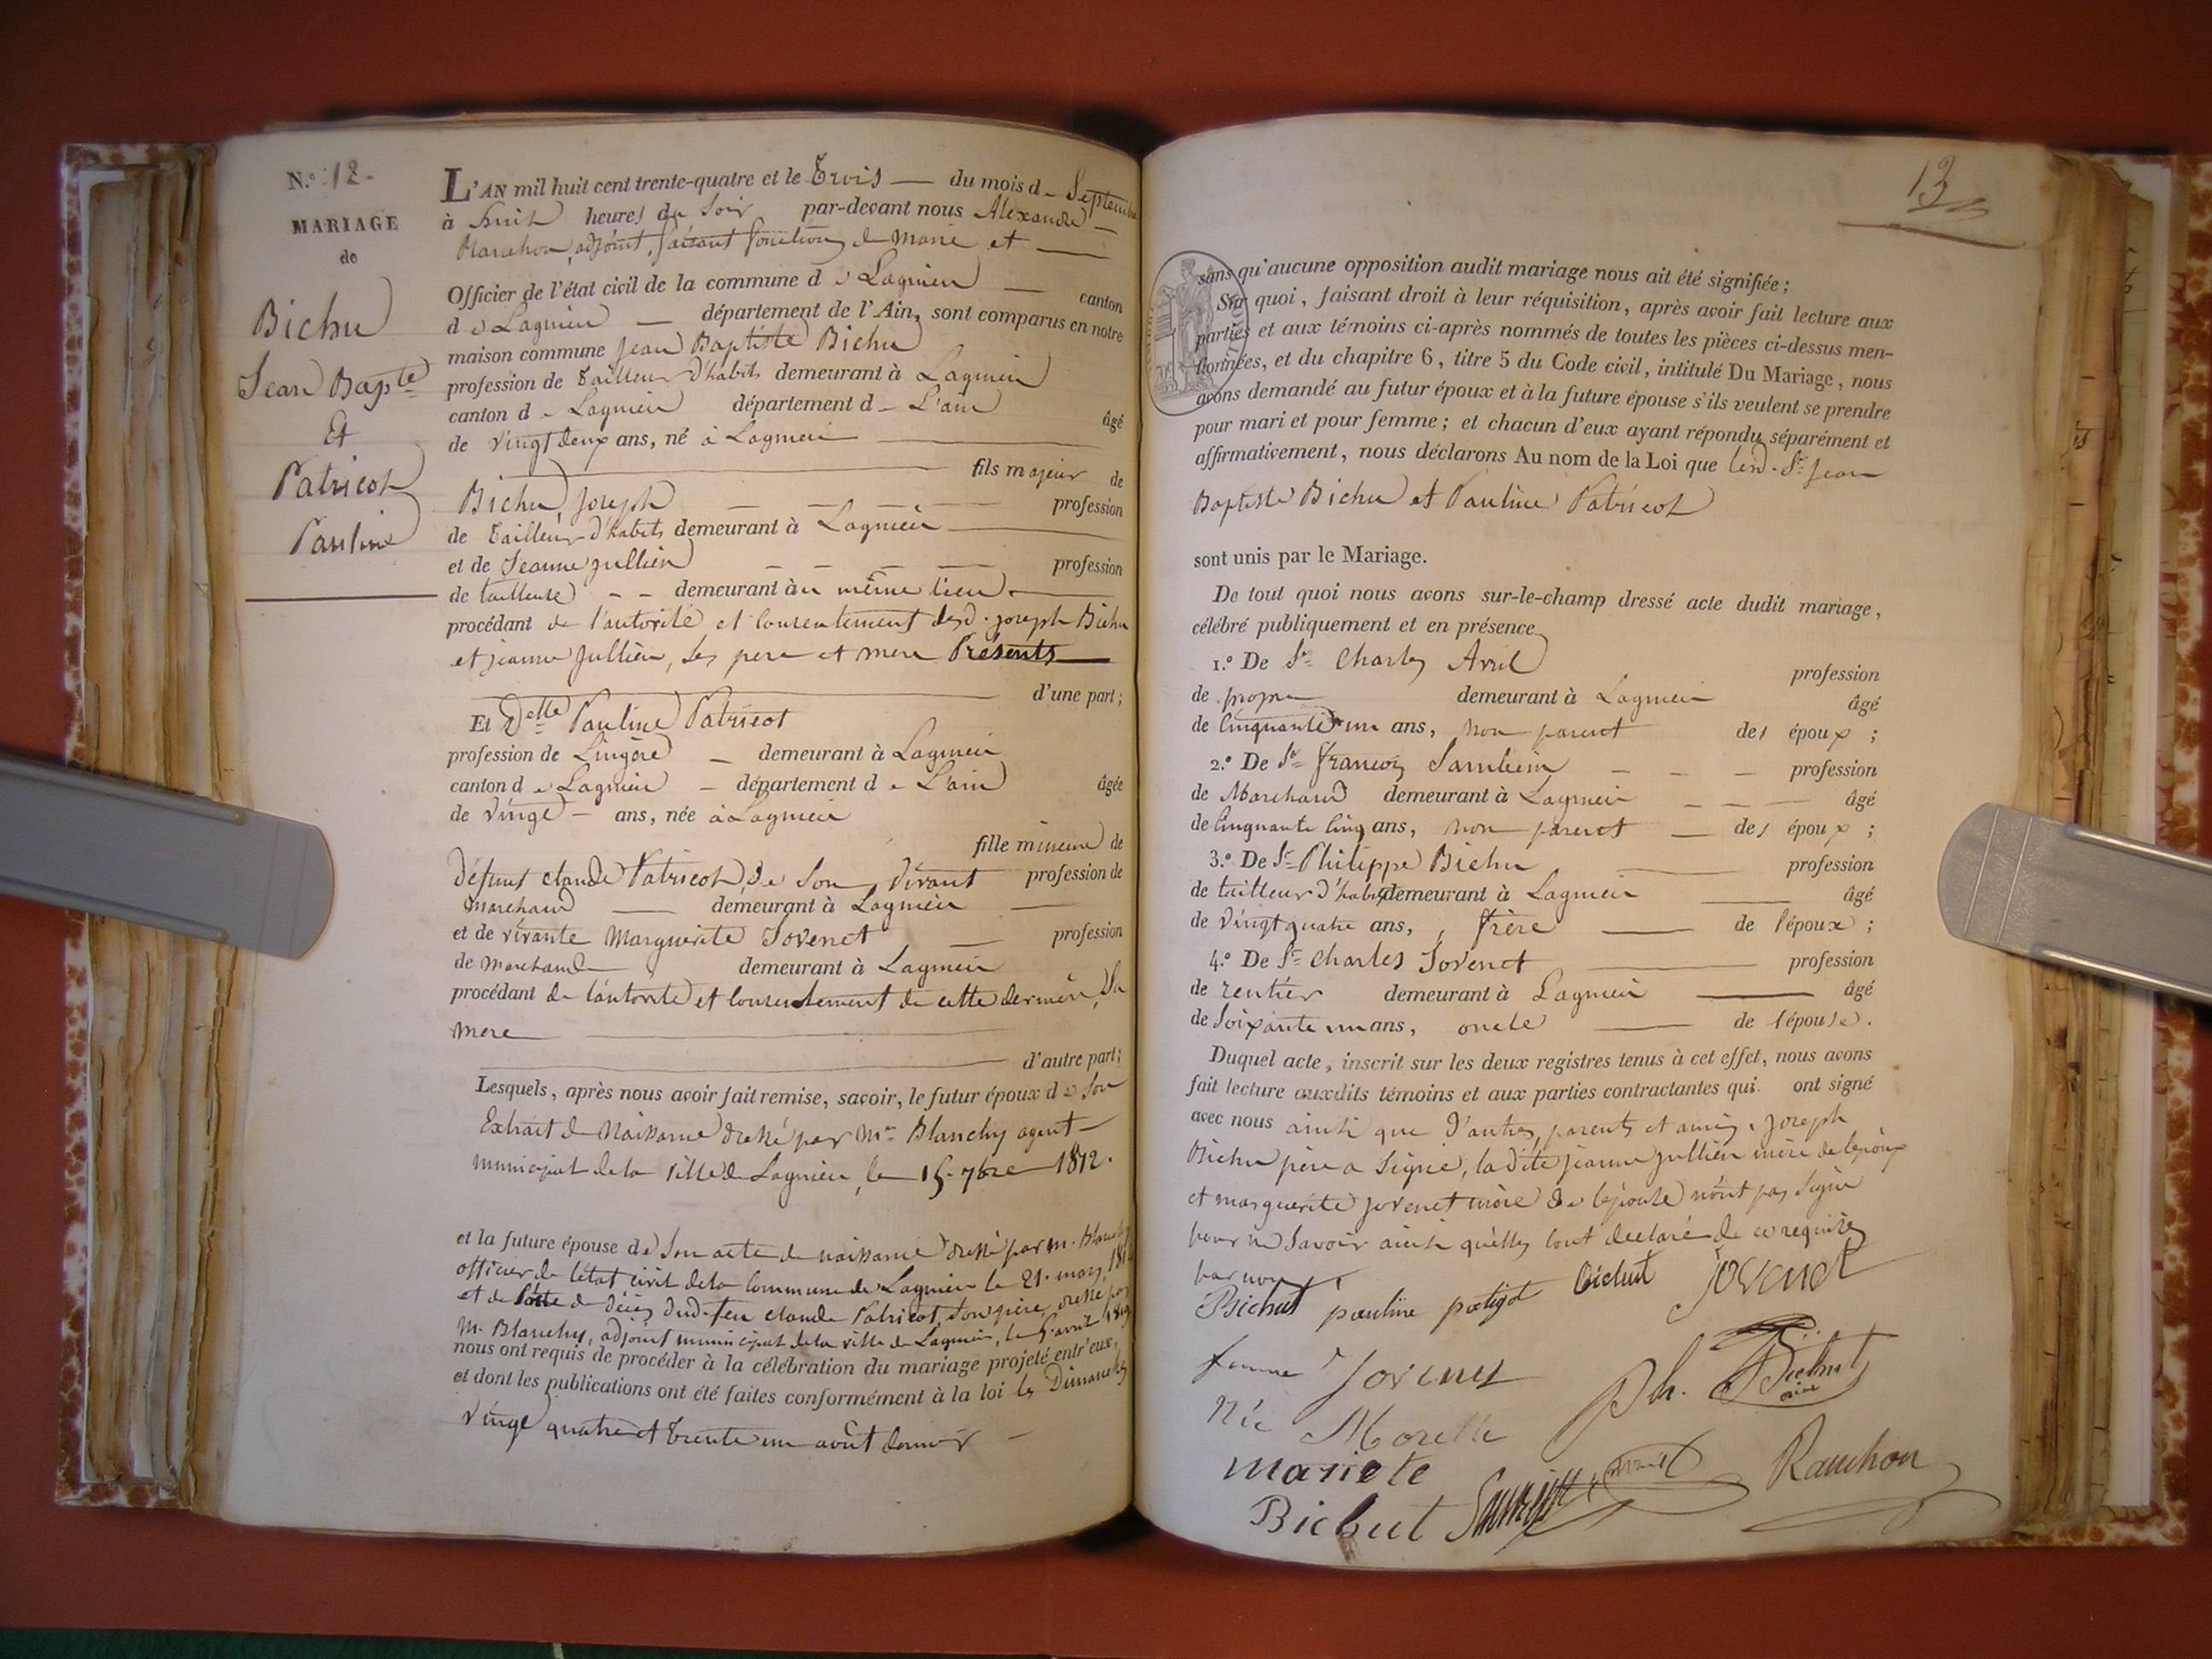 N.º 12.
MARIAGE
de
Bichu
Jean Bapte
Et
Patricot
Pauline
L'AN mil huit cent trente-quatre et le Trois du mois d Septembre
à huit heures du Soir par-devant nous Alexandre
adjoint, faisant fonctions de Maire et
Officier de l'état civil de la commune de Lagnieu canton
de Lagnieu département de l'Ain, sont comparus en notre
maison commune Jean Baptiste Bichu
profession de Tailleur d'habits demeurant à Lagnieu
canton de Lagnieu département de L'ain âgé
de vingt deux ans, né à Lagnieu
fils majeur de
Bichu Joseph profession
de Tailleur d'habits demeurant à Lagnieu
et de Jeanne Jullien profession
de tailleuse demeurant au même lieu
procédant de l'autorité et consentement desd. joseph Bichu
et jeanne Jullien, ses pere et mere Présents
d'une part;
Et Delle Pauline Patricot
profession de Lingère demeurant à Lagnieu
canton de Lagnieu département de L'ain âgée
de vingt ans, née à Lagnieu
fille mineure de
défunt claude Patricot, de son vivant profession de
marchand demeurant à Lagnieu
et de vivante Marguerite Jovenet profession
de marchande demeurant à Lagnieu
procédant de l'autorité et consentement de cette dernière, Sa
mere
d'autre part;
Lesquels, après nous avoir fait remise, savoir, le futur époux de son
Extrait de Naissance dressé par Mr Blanchy agent
municipal de la Ville de Lagnieu, le 15. 7bre 1812.
et la future épouse de Son acte de naissance dressé par M. Blanchy
officier de l'état civil de la Commune de Lagnieu le 21. mars
et de l'acte de décès dud. feu claude Patricot, Son père, dressé par
M. Blanchy, adjoint municipal de la ville de Lagnieu, le 5 avril
nous ont requis de procéder à la célébration du mariage projeté entr'eux,
et dont les publications ont été faites conformément à la loi les Dimanches
vingt quatre et trente un août dernier
13
sans qu'aucune opposition audit mariage nous ait été signifiée;
Sur quoi, faisant droit à leur réquisition, après avoir fait lecture aux
parties et aux témoins ci-après nommés de toutes les pièces ci-dessus men-
tionnées, et du chapitre 6, titre 5 du Code civil, intitulé Du Mariage, nous
avons demandé au futur époux et à la future épouse s'ils veulent se prendre
pour mari et pour femme; et chacun d'eux ayant répondu séparément et
affirmativement, nous déclarons Au nom de la Loi que lesd. Sr Jean
Baptiste Bichu et Pauline Patricot
sont unis par le Mariage.
De tout quoi nous avons sur-le-champ dressé acte dudit mariage,
célébré publiquement et en présence
1.º De Sr Charles Avril profession
de propre demeurant à Lagnieu âgé
de Cinquante un ans, non parent des époux;
2.º De Sr françois profession
de Marchand demeurant à Lagnieu âgé
de Cinquante Cinq ans, non parent des époux;
3.º De Sr Philippe Bichu profession
de tailleur d'habits demeurant à Lagnieu âgé
de vingt quatre ans, frère de l'époux;
4.º De Sr Charles Jovenet profession
de rentier demeurant à Lagnieu âgé
de Soixante un ans, oncle de l'épouse.
Duquel acte, inscrit sur les deux registres tenus à cet effet, nous avons
fait lecture auxdits témoins et aux parties contractantes qui ont signé
avec nous ainsi que d'autres parents et amis. joseph
Bichu père a Signé, la dite jeanne jullien mère de l'époux
et marguerite jovenet mère de l'épouse n'ont pas Signé
pour ne Savoir ainsi qu'elles l'ont declaré de ce requises
par nous.
Bichut pauline Bichut Jovenet
femme Jovenet
Née Morelle
Ph. Bichut
mariete
Bichut